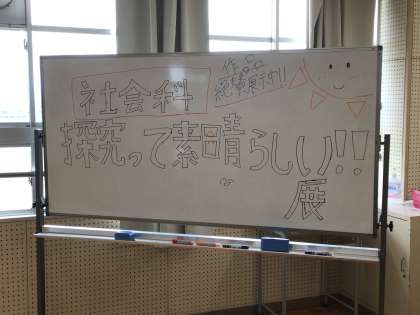 社会科
作品
絶賛展示中!!
探究って素晴らしい!!
展